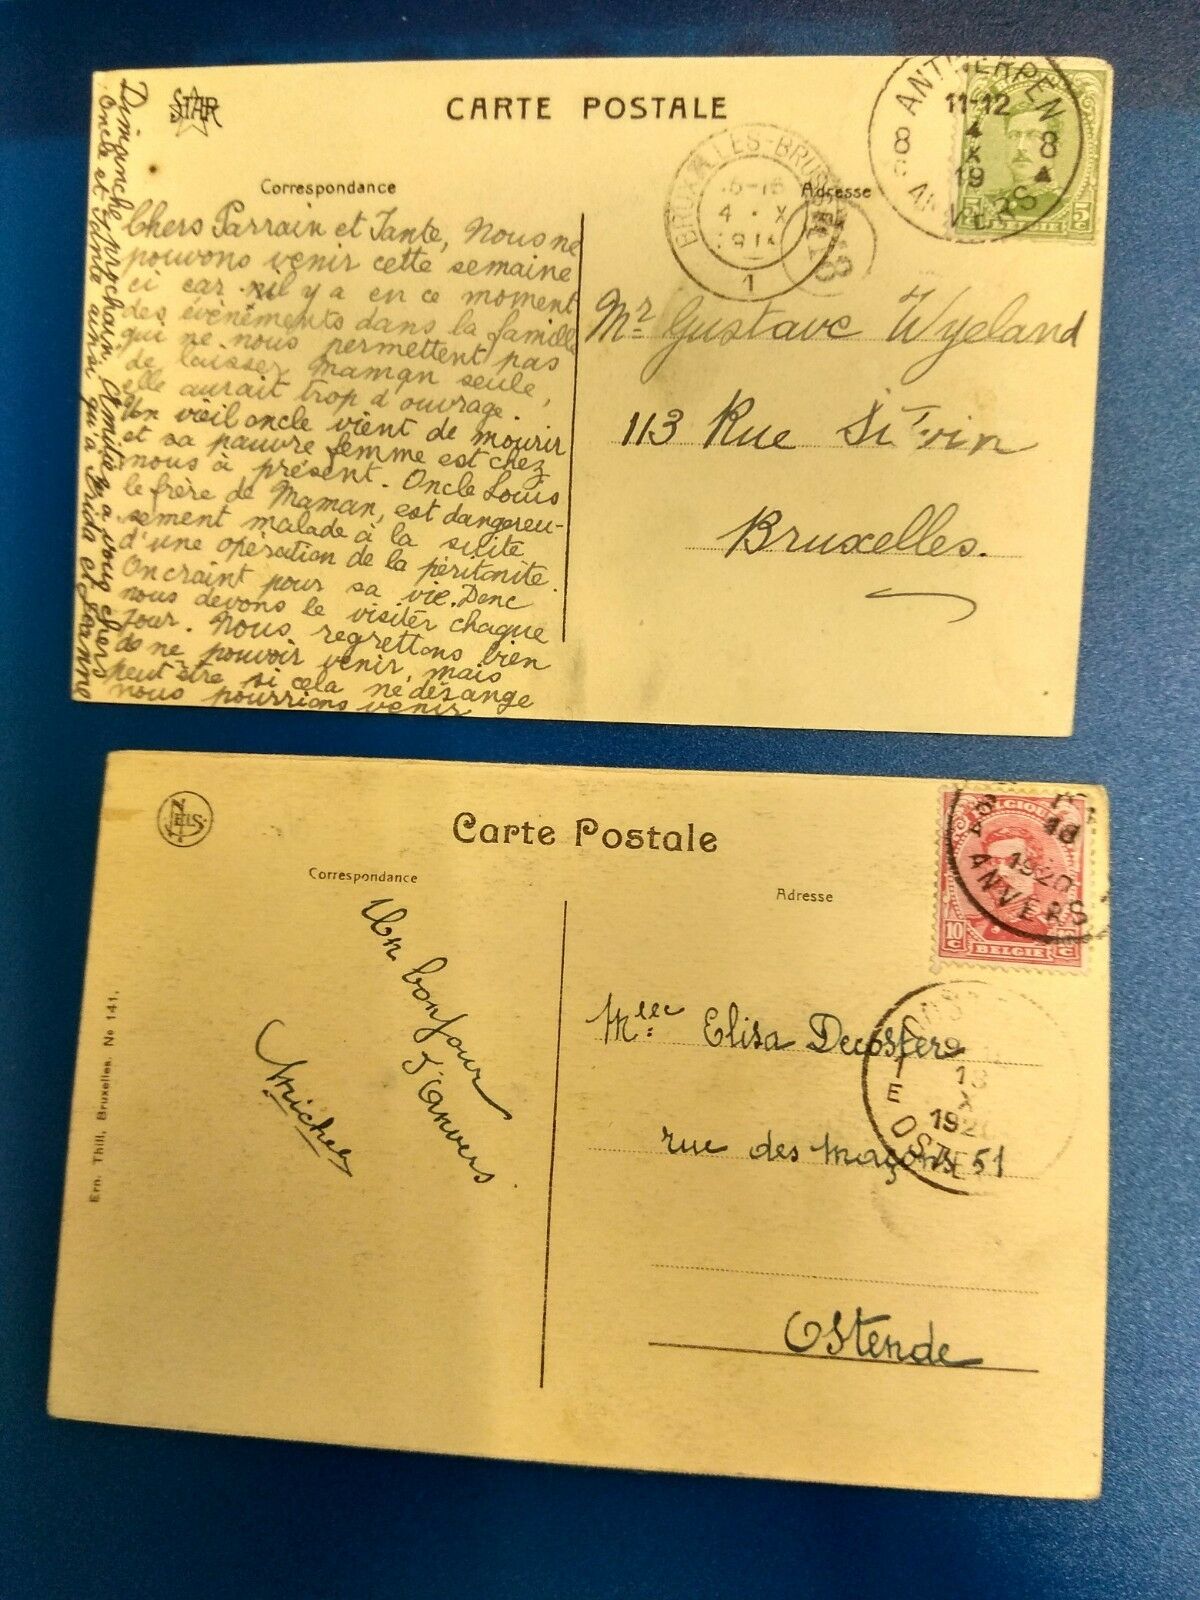 STAR
CARTE POSTALE
Correspondance
Adresse
Chers Parrain et Tante, Nous ne
pouvons venir cette semaine
ci car il y a en ce moment
des évènements dans la famille
qui ne nous permettent pas
de laisser Maman seule,
elle aurait trop d'ouvrage.
Un vieil oncle vient de mourir
et sa pauvre femme est chez
nous à présent. Oncle Louis
le frère de Maman, est dangereu-
sement malade à la suite
d'une opération de la péritonite.
On craint pour sa vie. Donc
nous devons le visiter chaque
jour. Nous regrettons bien
de ne pouvoir venir, mais
peut être si cela ne dérange
nous pourrions venir
Dimanche prochain. Amitiés à vous chers
Oncle et Tante ainsi qu'à et Jeanne
Mr Gustave Wyeland
113 Rue
Bruxelles.
ANTWERPEN
11-12
4
X
19
8 8
ANVERS
BRUXELLES-BRUSSEL
4 X
1
5c 5c
BELGIE
NELS
Carte Postale
Correspondance
Adresse
Un bonjour
d'Anvers
Michel
Mlle Elisa Decosfere
rue des Maçons 51
Ostende
Ern. Thill, Bruxelles. No 141.
BELGIQUE
10c
BELGIE
18
1920
ANVERS
X
1920
OSTENDE